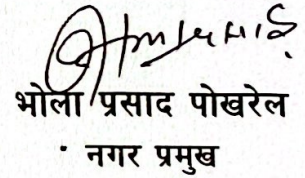 भोला प्रसाद पोखरेल
नगर प्रमुख